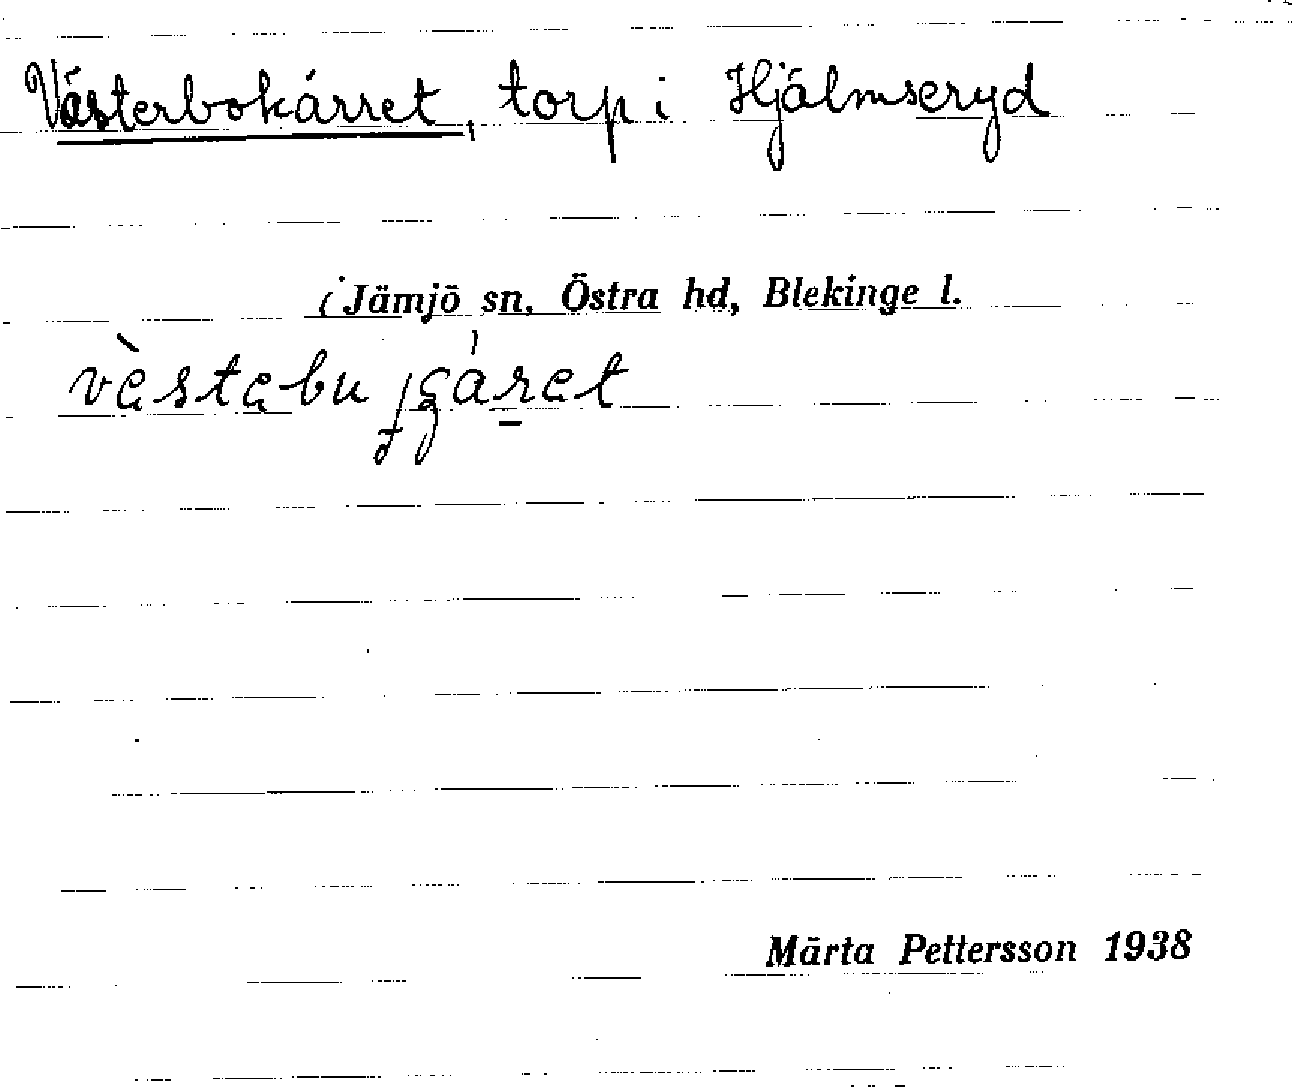 Västerbokärret, torp i Hjälmseryd
i Jämjö sn, Östra hd, Blekinge l.
Märta Pettersson 1938